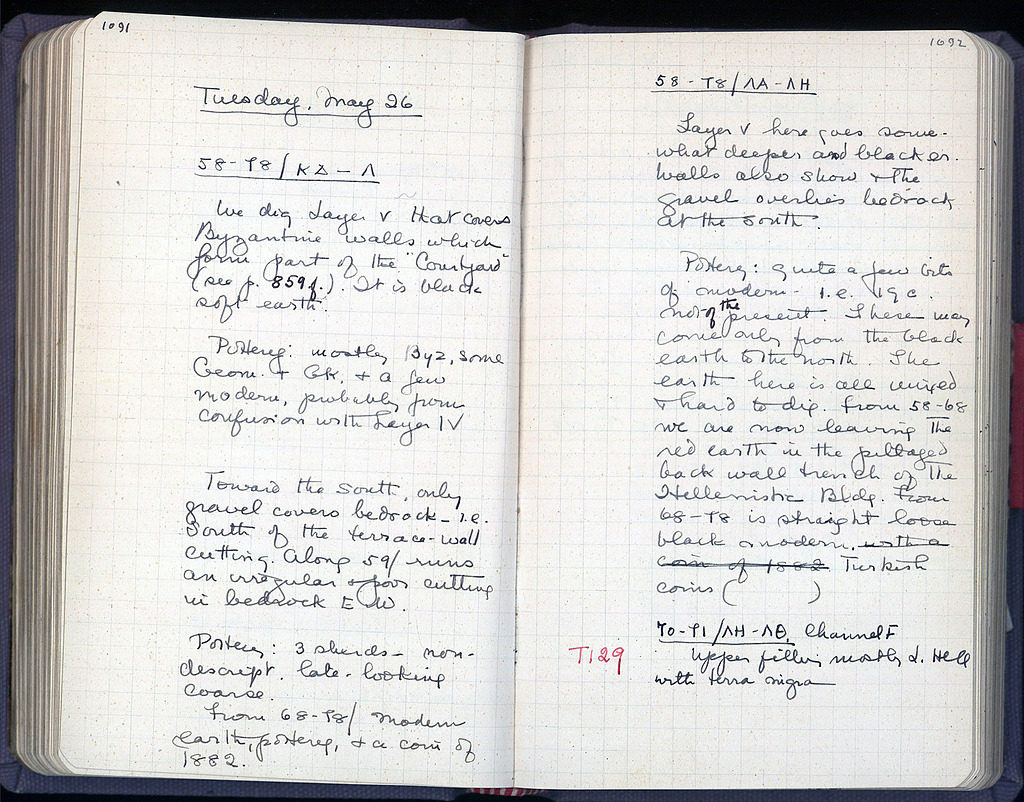 1091
Tuesday, May 26
58-78/ΚΔ-Λ
We dig Layer V that covers
Byzantine walls which
form part of the "Courtyard"
(see p. 859f.). It is black
soft earth.
Pottery: mostly Byz, some
Geom. + Gk. + a few
modern, probably from
confusion with Layer IV
Toward the South, only
gravel covers bedrock - i.e.
South of the terrace-wall
cutting. Along 59/ runs
an irregular + poor cutting
in bedrock E W.
Pottery: 3 sherds - non-
descript. late-looking
coarse.
From 68-78/ modern
earth, pottery, + a coin of
1882.
1092
58-78/ΛΑ-ΛΗ
Layer V here goes some-
what deeper and blacker.
Walls also show + the
gravel overlies bedrock
at the south.
Pottery: quite a few bits
of modern - i.e. 19 c.
not of the present. These may
come only from the black
earth to the north. The
earth here is all mixed
+ hard to dig. From 58-68
we are now leaving the
red earth in the pillaged
back wall trench of the
Hellenistic Bldg. From
68-78 is straight loose
black + modern, with a
coin of 1882 Turkish
coins (        )
70-71/ΛΗ-ΛΘ, Channel F
T129
Upper filling mostly L. Hell
with terra nigra